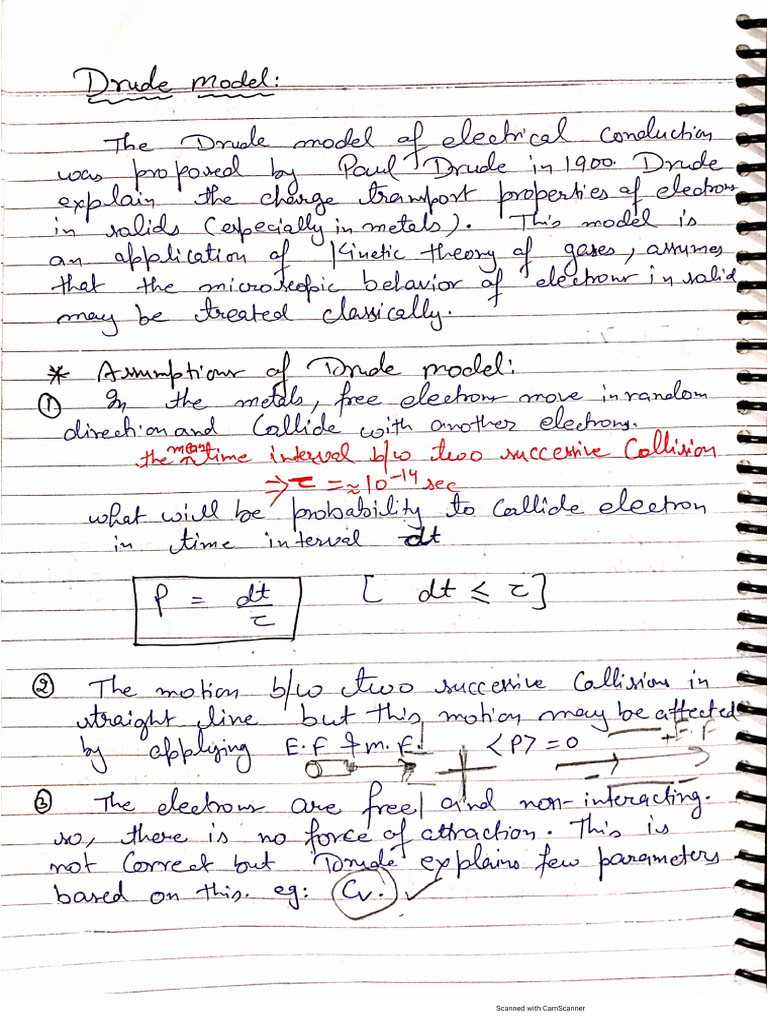 Drude model:
The Drude model of electrical conduction
was proposed by Paul Drude in 1900. Drude
explain the charge transport properties of electrons
in solids (especially in metals). This model is
an application of Kinetic theory of gases, assumes
that the microscopic behavior of electrons in solid
may be treated classically.
* Assumptions of Drude model:
① In the metals, free electrons move in random
direction and Collide with another electrons.
the mean time interval b/w two successive Collision
⇒ τ = ≈ 10⁻¹⁴ sec
what will be probability to Collide electron
in time interval dt
P = dt/τ [ dt ≤ τ ]
② The motion b/w two successive Collisions in
straight line but this motion may be affected
by applying E.F & M.F! <P> = 0 +E.F
③ The electrons are free and non-interacting.
so, there is no force of attraction. This is
not Correct but Drude explains few parameters
based on this. eg: Cv. ✓
Scanned with CamScanner